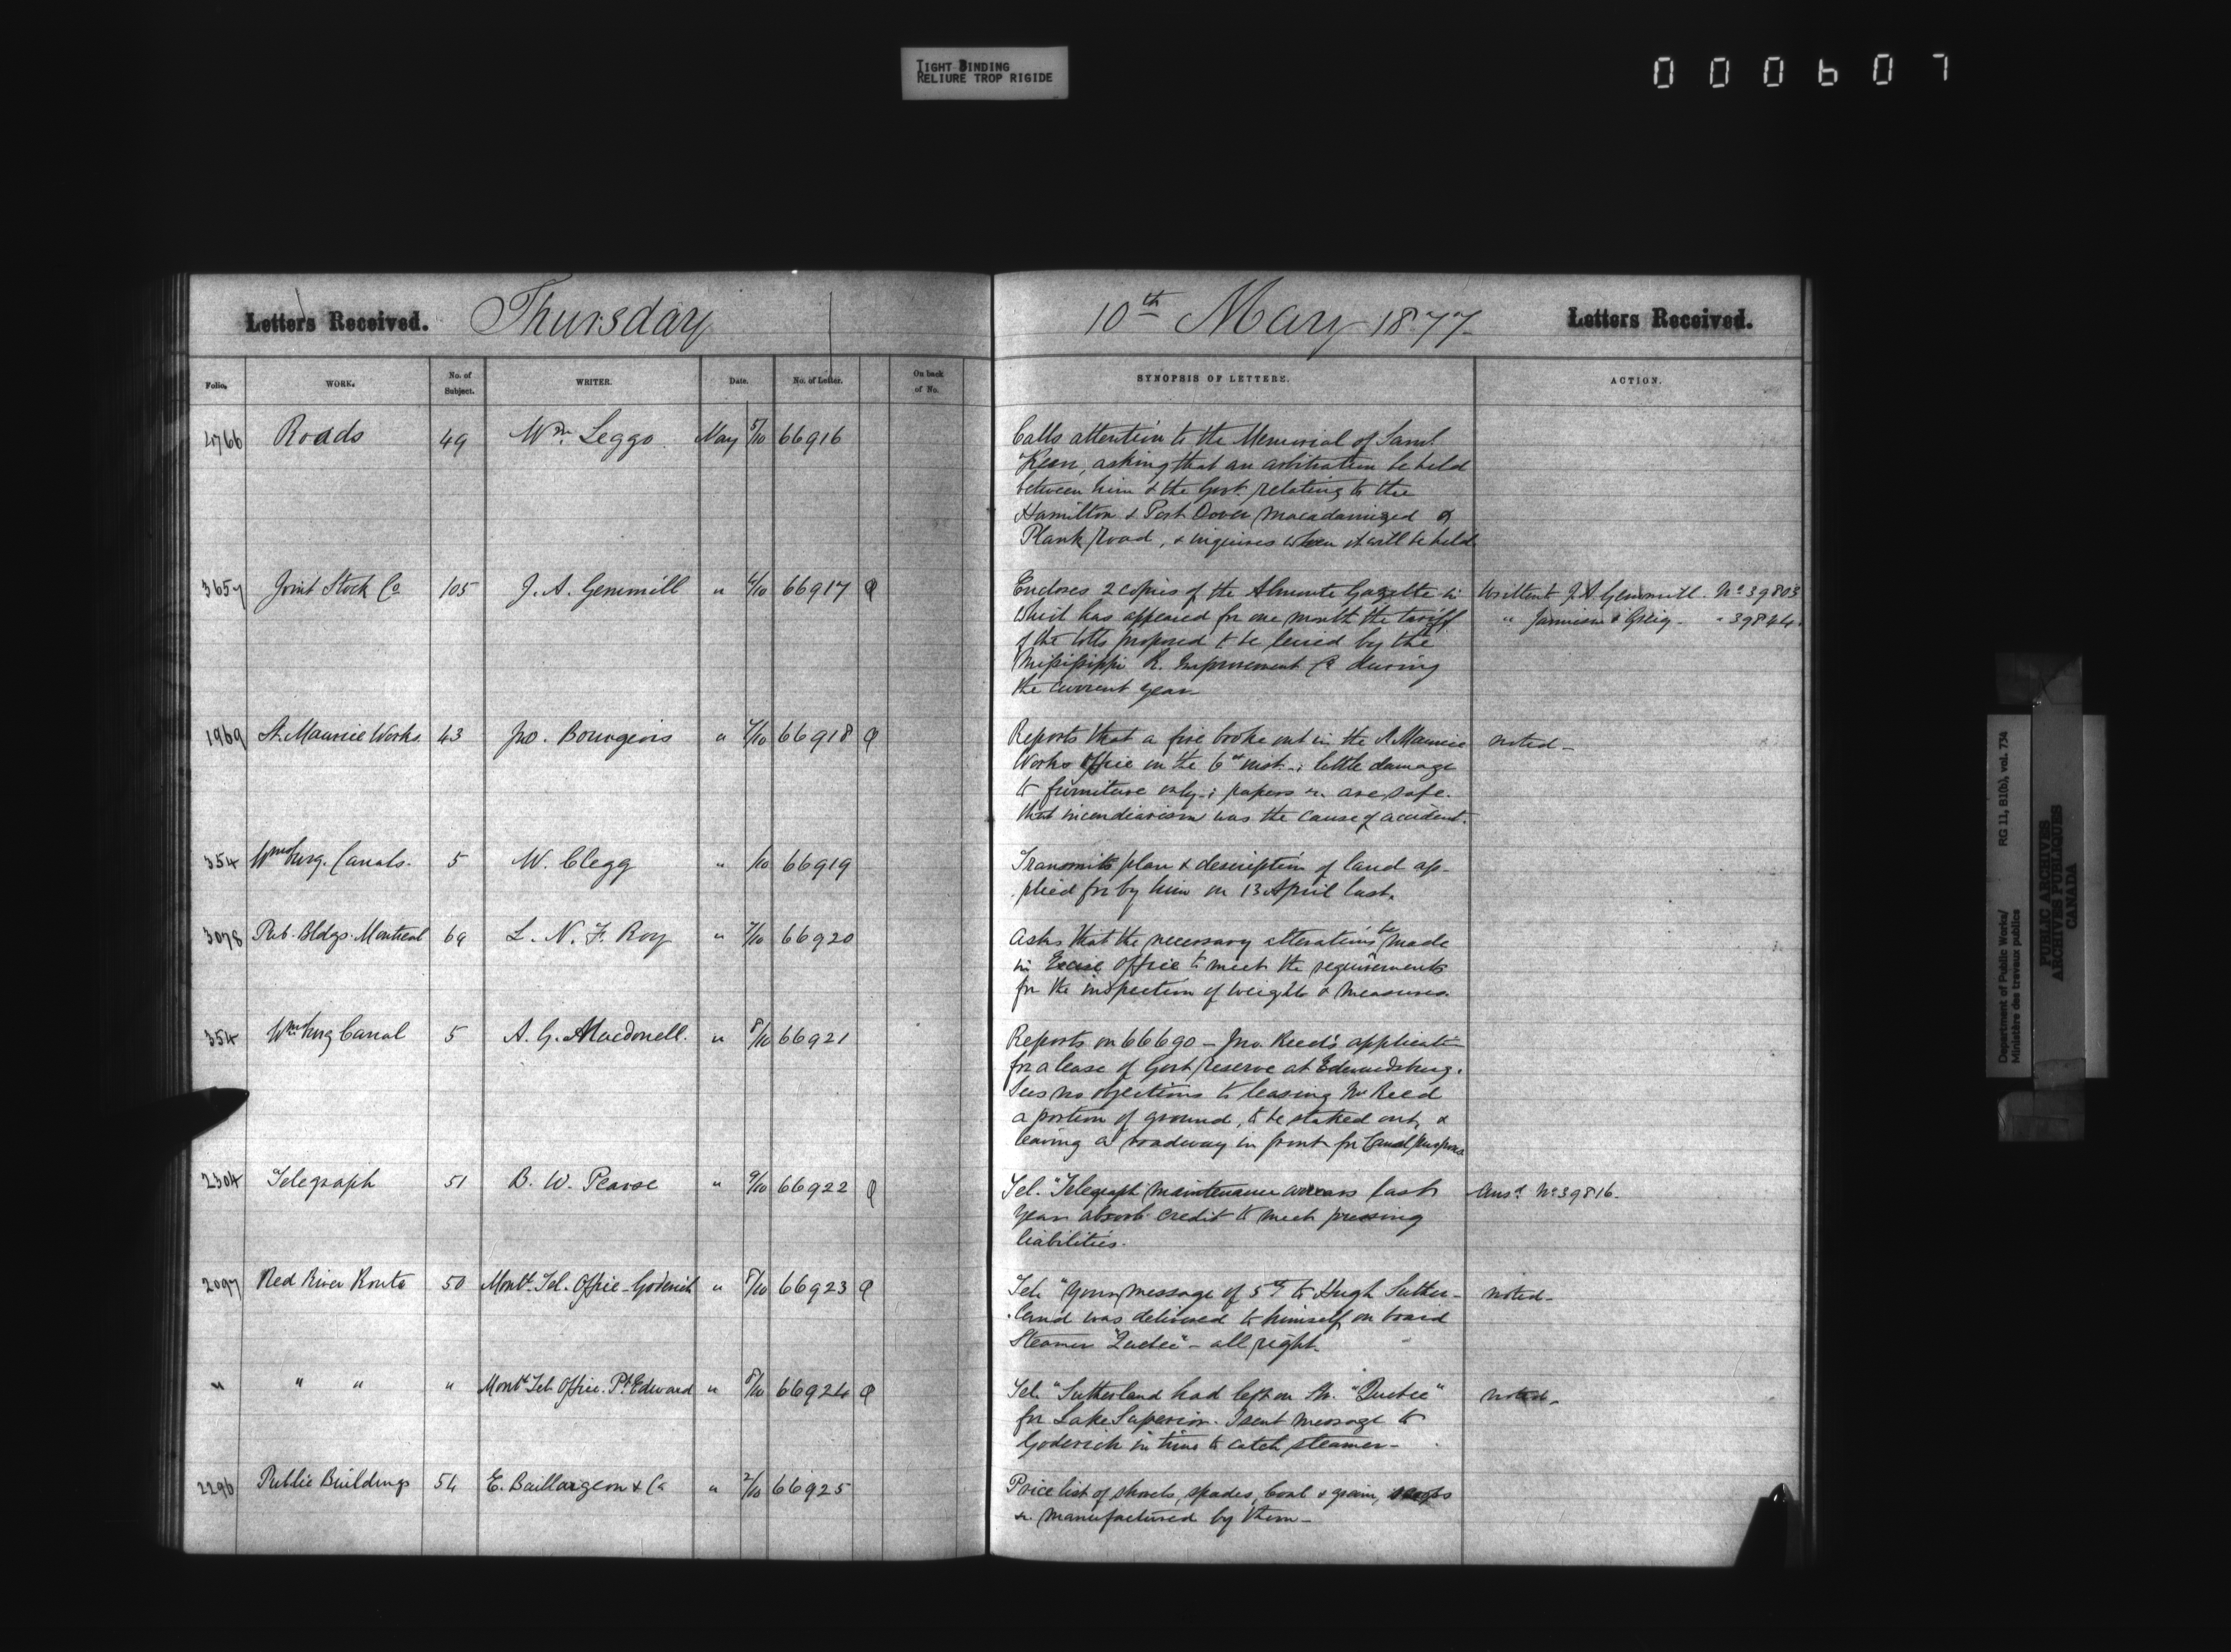 TIGHT BINDING
RELIURE TROP RIGIDE
000607
Letters Received. Thursday 10th May 1877 Letters Received.
Folio. WORK. No. of Subject. WRITER. Date. No. of Letter. On back of No. SYNOPSIS OF LETTERS. ACTION.
4766 Roads 49 Wm. Leggo. May 5/10 66916 Calls attention to the Memorial of Saml.
Keen, asking that an arbitration be held
between him & the Govt. relating to the
Hamilton & Port Dover Macadamized &
Plank Road, & inquires when it will be held
3657 Joint Stock Co 105 J. A. Gemmill " 66917 Encloses 2 copies of the Almonte Gazette in Written J. A. Gemmill. No 39803
which has appeared for one month the tariff " Jamieson & Greig - " 39844.
of the tolls proposed to be levied by the
Mississippi R. Improvement Co during
the current year
1969 St. Maurice Works 43 Jno. Bourgeois " 7/10 66918 Reports that a fire broke out in the St Maurice noted -
Works Office on the 6th inst. ; little damage
to furniture only ; papers &c. are safe.
that incendiarism was the cause of accident.
354 Wmsburg. Canals. 5 W. Clegg " /10 66919 Transmits plan & description of land ap-
plied for by him on 13 April last.
3078 Pub. Bldgs. Montreal 69 L. N. F. Roy " 7/10 66920 Asks that the necessary alterations be made
in Excise Office to meet the requirements
for the inspection of weights & measures.
354 Wmsburg Canal 5 A. G. Macdonell. " 8/10 66921 Reports on 66690 - Jno. Reed's application
for a lease of Govt reserve at Edwardsburg.
Sees no objections to leasing Mr Reed
a portion of ground, to be staked out, &
leaving a roadway in front for Canal purposes
2304 Telegraph 51 B. W. Pearse " 9/10 66922 Tel. "Telegraph maintenance arrears last Ansd. No 39816.
year absorb credit to meet pressing
liabilities.
2097 Red River Route 50 Montl. Tel. Office - Goderich " 8/10 66923 Tel. "Your message of 5th to Hugh Suther- noted -
land was delivered to himself on board
Steamer "Quebec" - all right.
" " " " Montl Tel. Office. Pt. Edward " 8/10 66924 Tel. "Sutherland had left on Str. "Quebec" noted -
for Lake Superior. I sent message to
Goderich in time to catch steamer -
2296 Public Buildings 54 E. Baillargeon & Co " 2/10 66925 Price list of shovels, spades, Coal & grain, scoops
&c. manufactured by them -
Department of Public Works/ RG 11, B1(b), vol. 734
Ministère des travaux publics
PUBLIC ARCHIVES
ARCHIVES PUBLIQUES
CANADA